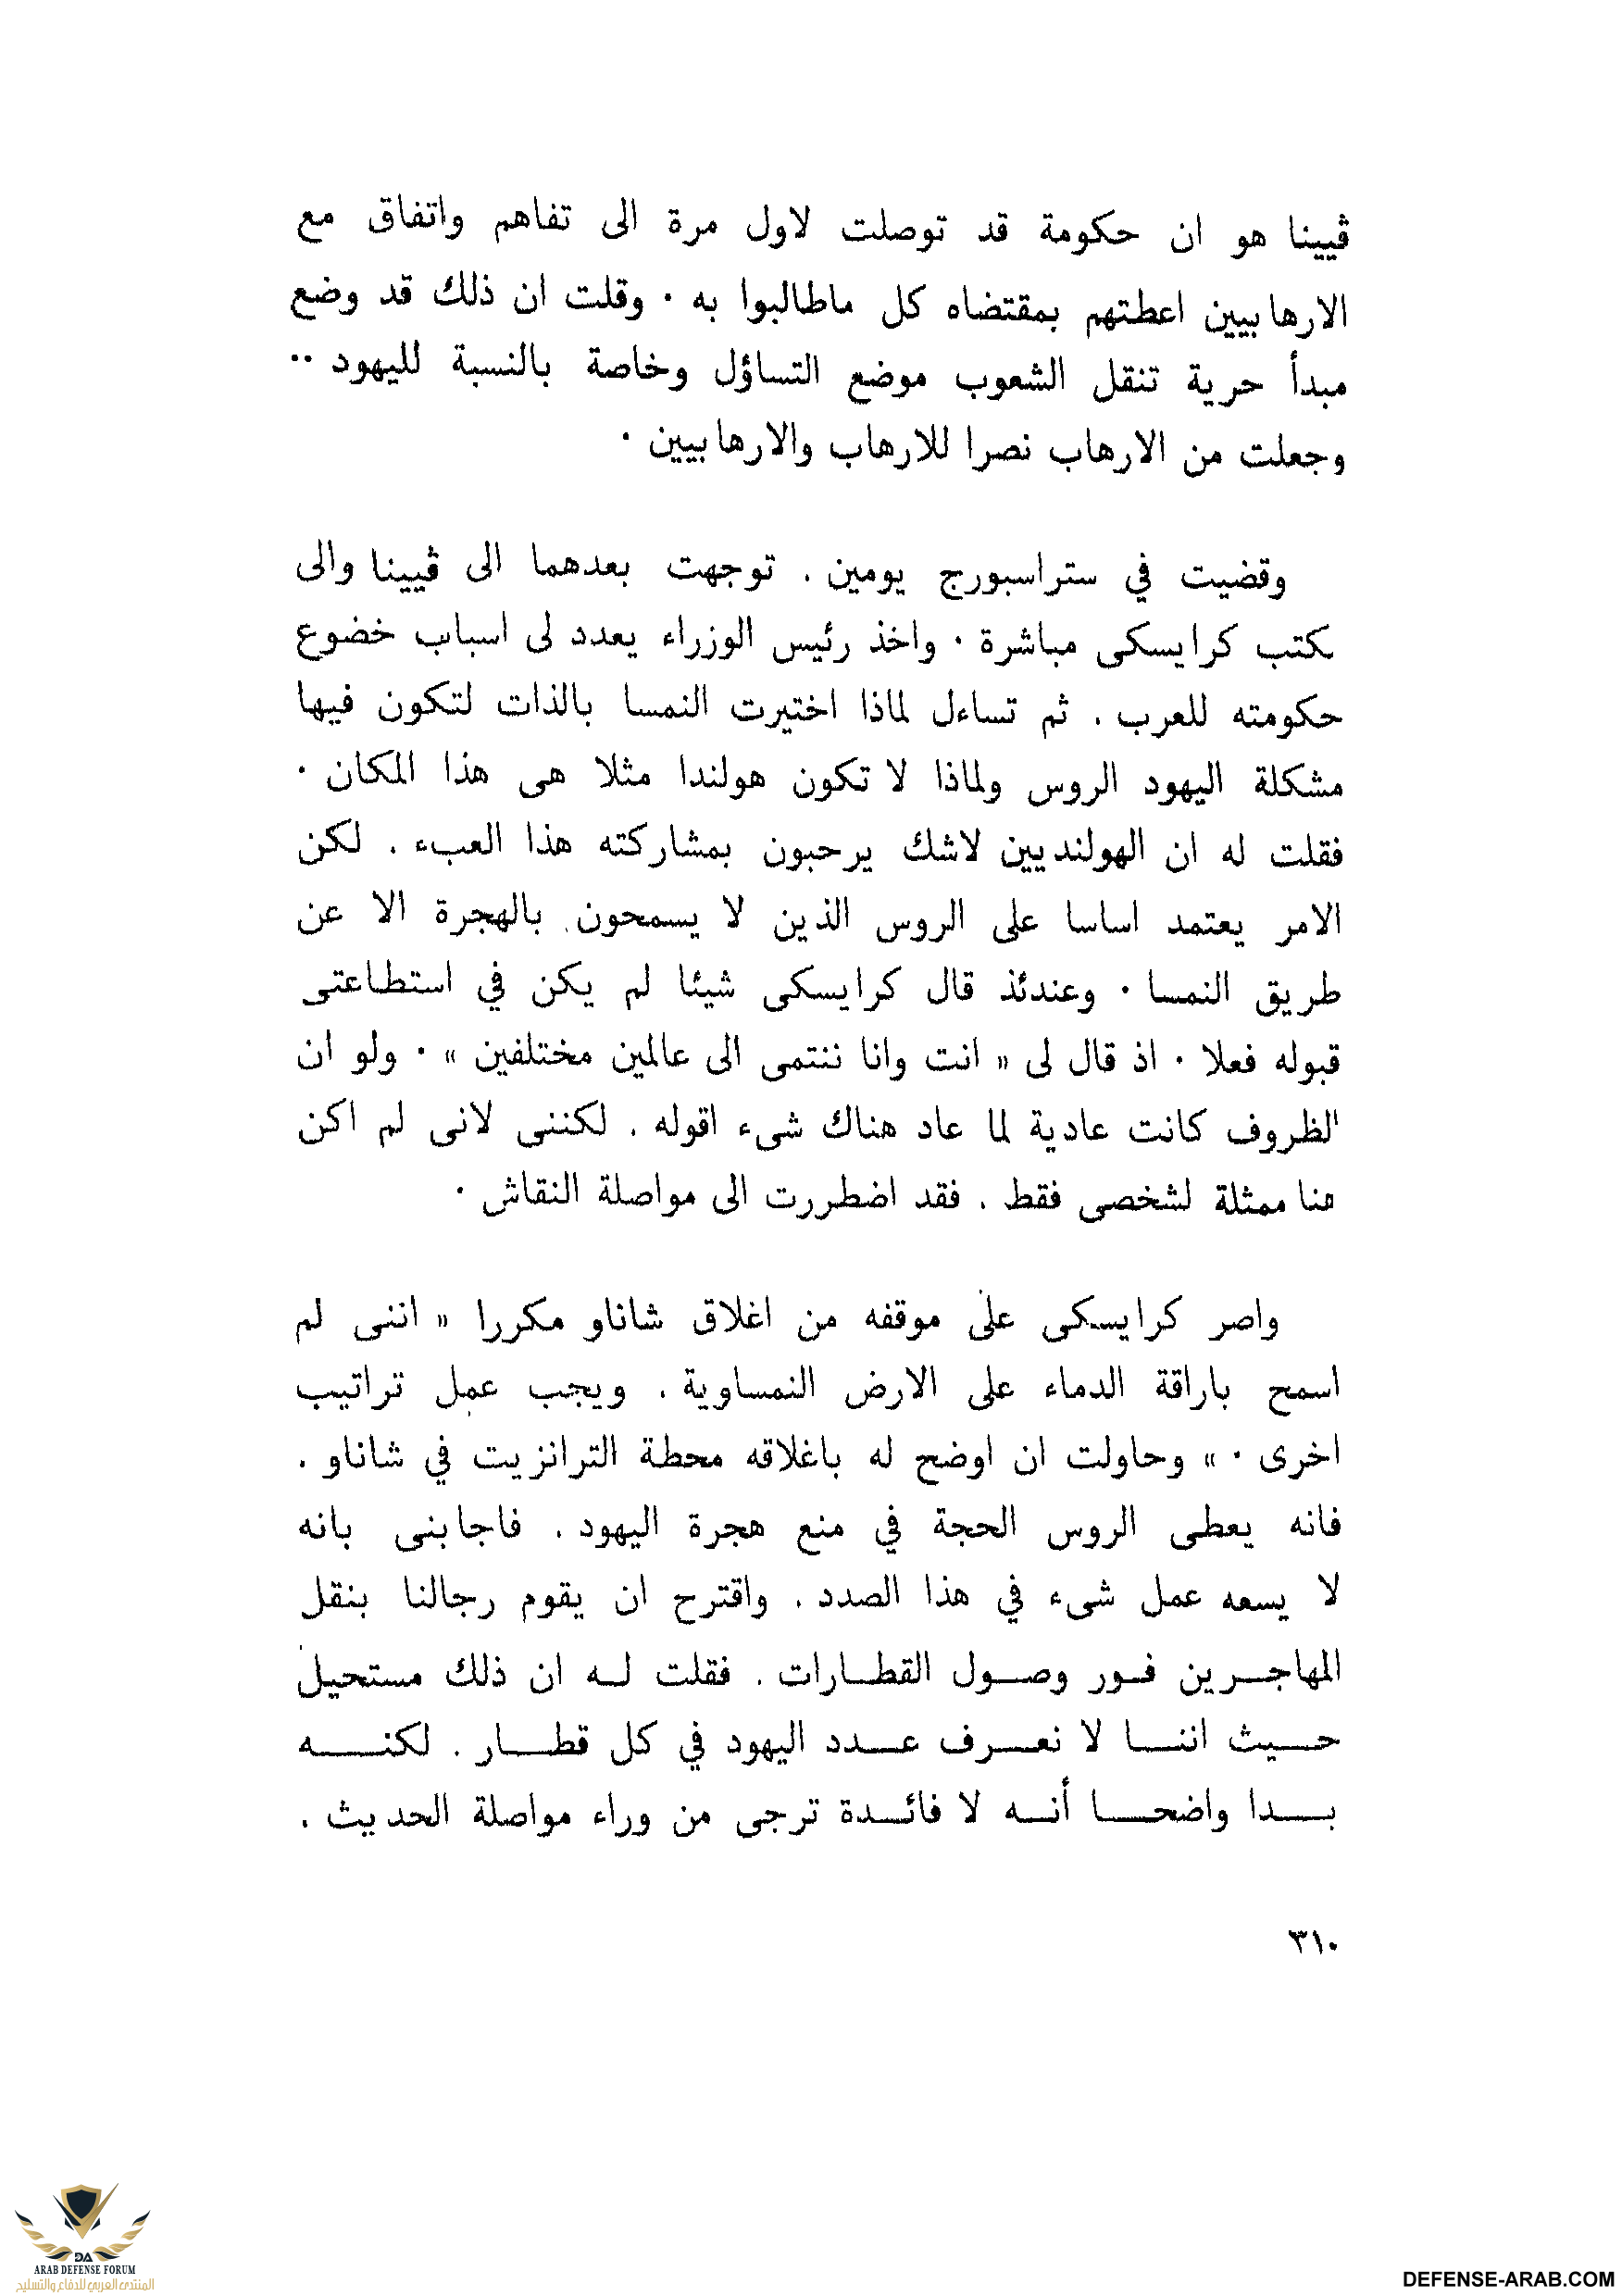 ڤيينا هو ان حكومة قد توصلت لاول مرة الى تفاهم واتفاق مع
الارهابيين اعطتهم بمقتضاه كل ماطالبوا به ٠ وقلت ان ذلك قد وضع
مبدأ حرية تنقل الشعوب موضع التساؤل وخاصة بالنسبة لليهود ٠٠
وجعلت من الارهاب نصرا للارهاب والارهابيين ٠
وقضيت في ستراسبورج يومين . توجهت بعدهما الى ڤيينا والى
كتب كرايسكى مباشرة ٠ واخذ رئيس الوزراء يعدد لى اسباب خضوع
حكومته للعرب . ثم تساءل لماذا اختيرت النمسا بالذات لتكون فيها
مشكلة اليهود الروس ولماذا لا تكون هولندا مثلا هى هذا المكان ٠
فقلت له ان الهولنديين لاشك يرحبون بمشاركته هذا العبء . لكن
الامر يعتمد اساسا على الروس الذين لا يسمحون بالهجرة الا عن
طريق النمسا ٠ وعندئذ قال كرايسكى شيئا لم يكن في استطاعتى
قبوله فعلا ٠ اذ قال لى « انت وانا ننتمى الى عالمين مختلفين » ٠ ولو ان
الظروف كانت عادية لما عاد هناك شىء اقوله . لكننى لانى لم اكن
هنا ممثلة لشخصى فقط . فقد اضطررت الى مواصلة النقاش ٠
واصر كرايسكى على موقفه من اغلاق شاناو مكررا « اننى لم
اسمح باراقة الدماء على الارض النمساوية . ويجب عمل تراتيب
اخرى ٠ » وحاولت ان اوضح له باغلاقه محطة الترانزيت في شاناو .
فانه يعطى الروس الحجة في منع هجرة اليهود . فاجابنى بانه
لا يسعه عمل شىء في هذا الصدد . واقترح ان يقوم رجالنا بنقل
المهاجـرين فـور وصـول القطـارات . فقلت لـه ان ذلك مستحيل
حـيث اننـا لا نعـرف عـدد اليهود في كل قطـار . لكنـه
بـدا واضحـا أنـه لا فائـدة ترجى من وراء مواصلة الحديث .
٣١٠
ARAB DEFENSE FORUM
المنتدى العربي للدفاع والتسليح
DEFENSE-ARAB.COM